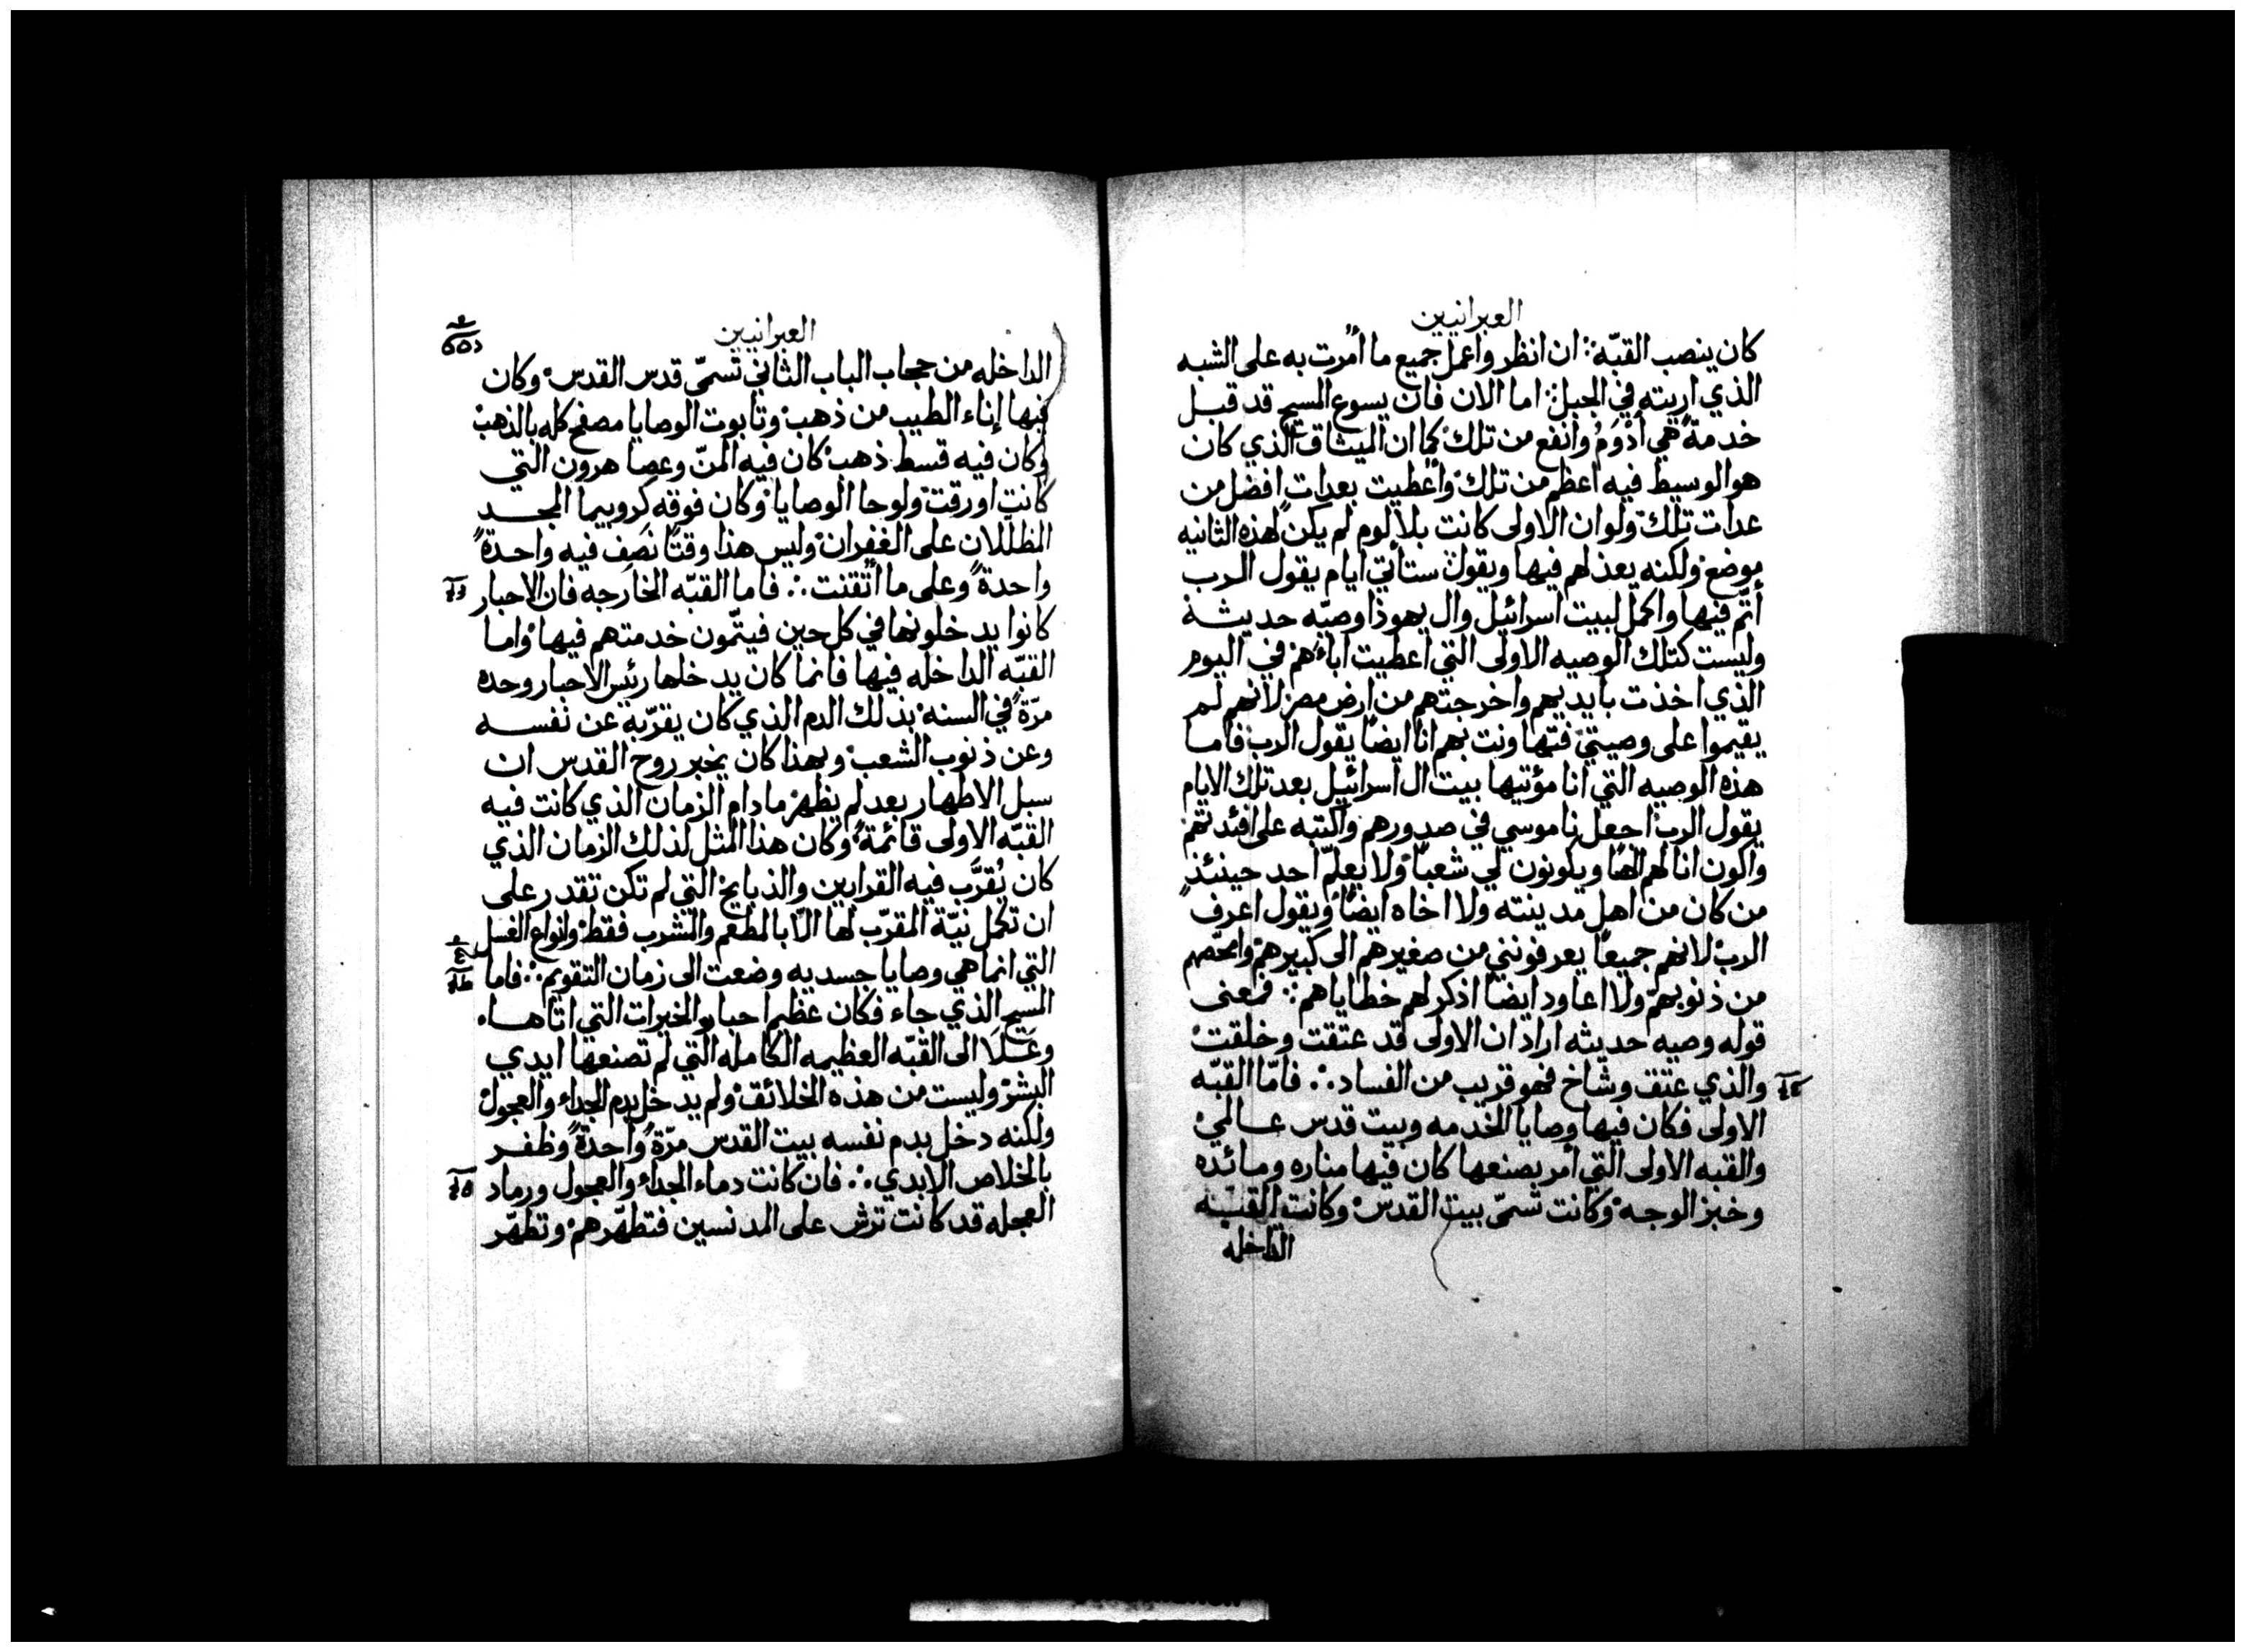 العبرانيين
كان ينصب القبّه: ان انظر واعمل جميع ما أُمرت به على الشبه
الذي اريته في الجبل: اما الان فان يسوع المسيح قد قبل
خدمةً هي أدْوَمُ وانفع من تلك كما ان الميثاق الذي كان
هو الوسيط فيه اعظم من تلك وأعطيت بعدات افضل من
عدات تلك ولو ان الاولى كانت بلا لوم لم يكن لهذه الثانيه
موضع ولكنه يعذلهم فيها ويقول ستأتي ايام يقول الرب
أتمّ فيها واكمل لبيت اسرائيل وال يهوذا وصيّه حديثة
وليست كتلك الوصيه الاولى التي اعطيت اباءهم في اليوم
الذي اخذت بايديهم واخرجتهم من ارض مصر لانهم لم
يقيموا على وصيتي فتها ونت بهم انا ايضًا يقول الرب فاما
هذه الوصيه التي انا مؤتيها بيت ال اسرائيل بعد تلك الايام
يقول الرب اجعل ناموسي في صدورهم واكتبه على افئدتهم
واكون انا لهم الهًا ويكونون لي شعبًا ولا يعلّم احد حينئذٍ
من كان من اهل مدينته ولا اخاه ايضًا ويقول اعرف
الرب لانهم جميعًا يعرفونني من صغيرهم الى كبيرهم وامحّصهم
من ذنوبهم ولا اعاود ايضًا اذكر لهم خطاياهم: فمعنى
قوله وصيه حديثه اراد ان الاولى قد عتقت وخلقت
والذي عتق وشاخ فهو قريب من الفساد ∴ فامّا القبّه
الاولى فكان فيها وصايا الخدمه وبيت قدس عالمي
والقبه الاولى التي أمر بصنعها كان فيها مناره ومائده
وخبز الوجه وكانت تسمّى بيت القدس وكانت القبّه
الداخله
العبرانيين
الداخله من حجاب الباب الثاني تسمّى قدس القدس وكان
فيها إناء الطيب من ذهب وتابوت الوصايا مصفح كله بالذهب
وكان فيه قسط ذهب كان فيه المنّ وعصا هرون التي
كانت اورقت ولوحا الوصايا وكان فوقه كروبيما المجد
المظللان على الغفران وليس هذا وقتًا نصف فيه واحدةً
واحدةً وعلى ما أتقنت ∴ فاما القبّه الخارجه فان الاحبار
كانوا يدخلونها في كل حين فيتمّون خدمتهم فيها واما
القبّه الداخله فيها فانما كان يدخلها رئس الاحبار وحده
مرّةً في السنه بذلك الدم الذي كان يقرّبه عن نفسه
وعن ذنوب الشعب وبهذا كان يخبر روح القدس ان
سبل الاطهار بعد لم يظهر مادام الزمان الذي كانت فيه
القبّه الاولى قائمة وكان هذا المثل لذلك الزمان الذي
كان يُقرَّب فيه القرابين والذبايح التي لم تكن تقدر على
ان تكمل نيّة المقرّب لها الّا بالمطعم والمشرب فقط وانواع الغسل
التي انما هي وصايا جسديه وضعت الى زمان التقويم ∴ فاما
المسيح الذي جاء فكان عظيم احبار الخيرات التي اتاها
وعَلَا الى القبّه العظيمه الكامله التي لم تصنعها ايدي
البشر وليست من هذه الخلائق ولم يدخل بدم الجداء والعجول
ولكنه دخل بدم نفسه بيت القدس مرّةً واحدةً وظفر
بالخلاص الابدي ∴ فان كانت دماء الجداء والعجول ورماد
العجله قد كانت ترش على المدنسين فتطهّرهم وتطهّر